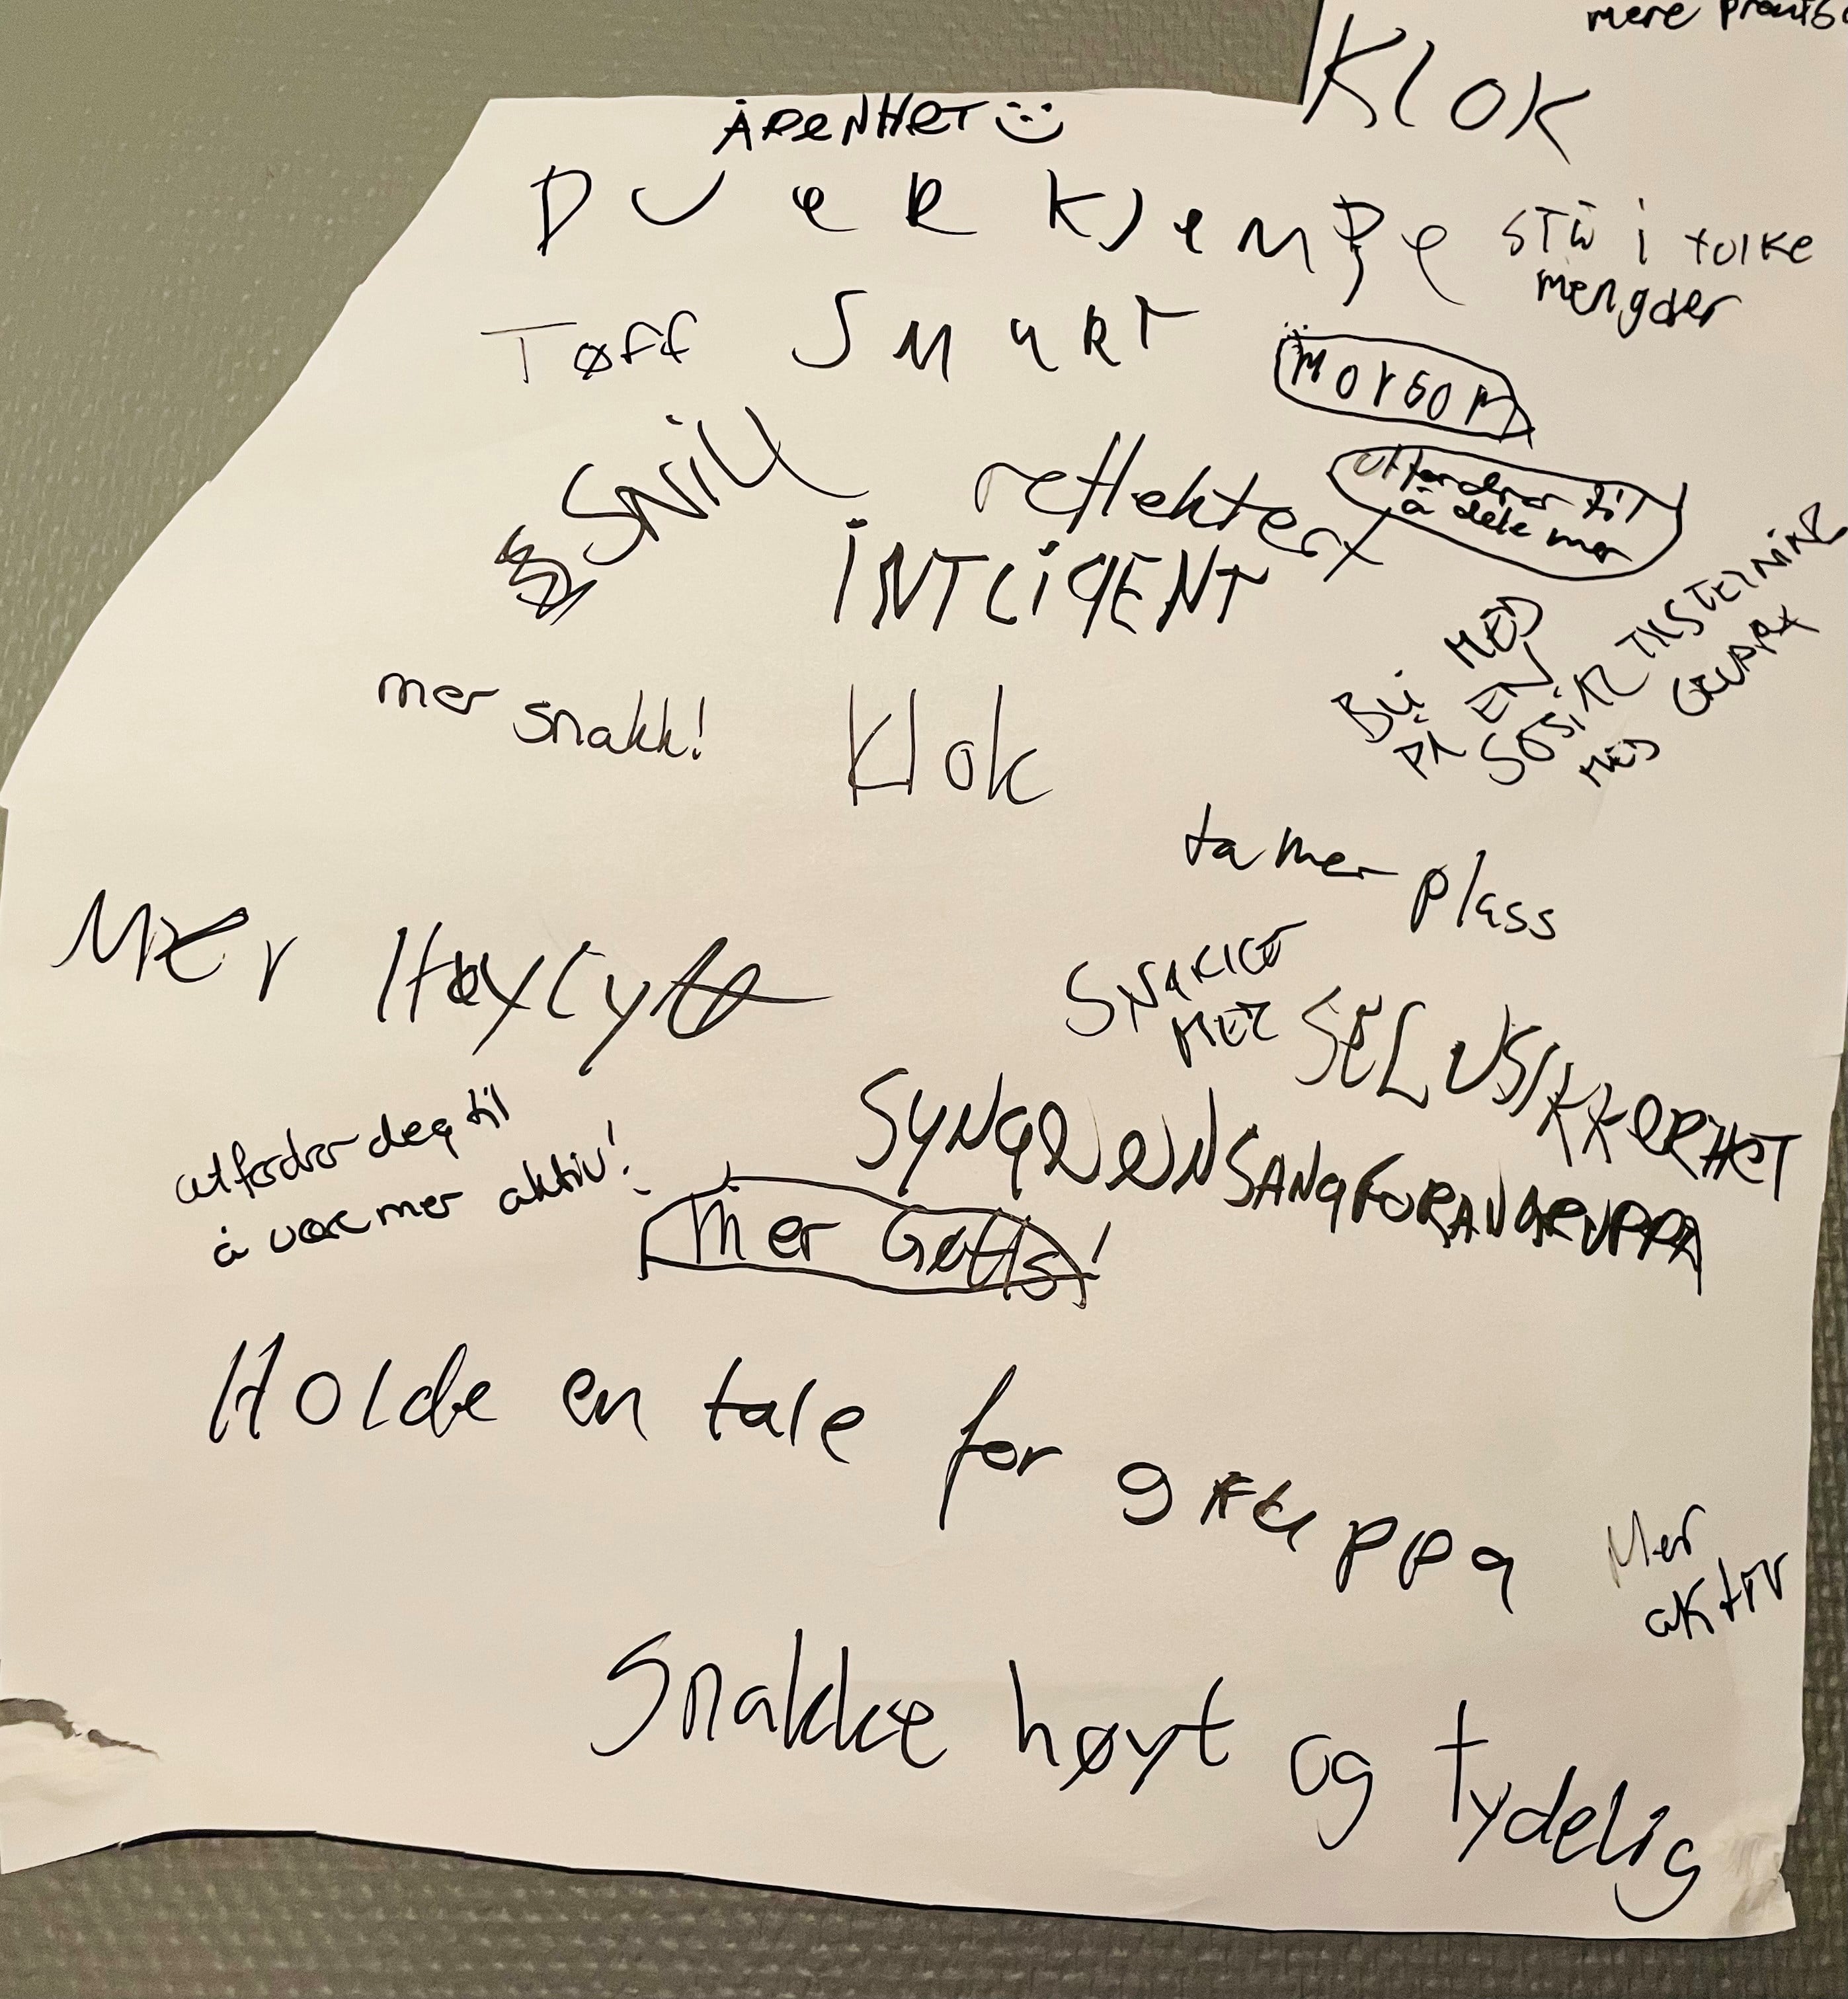 mere
KlOK
ÅPeNHeT
DU eR KJeMPe
STÅ i folke
mengder
Tøff SMART
morsom
Snill
reflektert
utfordrer til
å dele mer
INTLIGENT
BLI MED
PÅ EN
SOSIAL TILSTELNING
MED GRUPPA
mer snakk!
Klok
ta mer plass
Mer Høylytt
SNAKKE
MER
SELVSIKKeRHeT
utfordrer deg til
å være mer aktiv!
SYNGe eN SANG FORAN GRUPPA
mer Gutts!
Holde en tale for gruppa
Mer
aktiv
Snakke høyt og tydelig